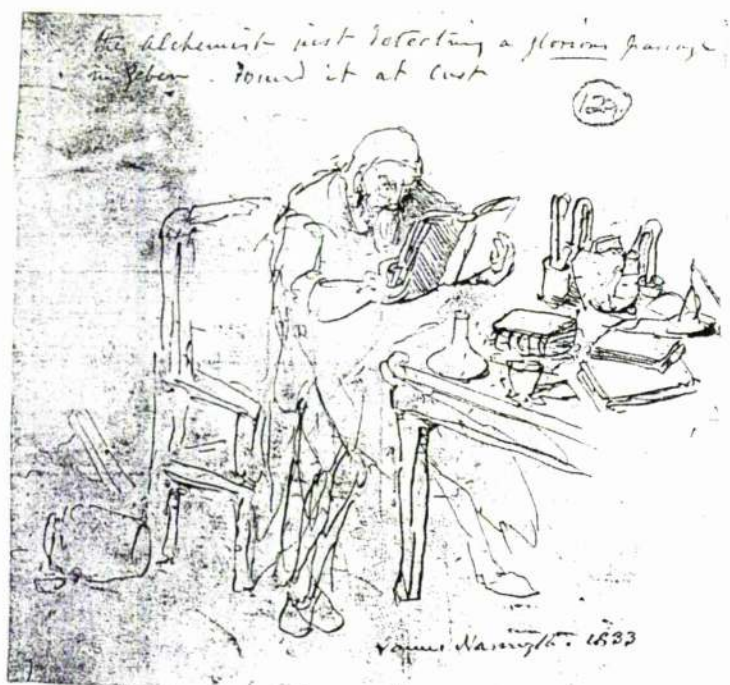 the Alchemist just detecting a glorious passage
in Geber. Found it at last
129.
James Nasmyth. 1833